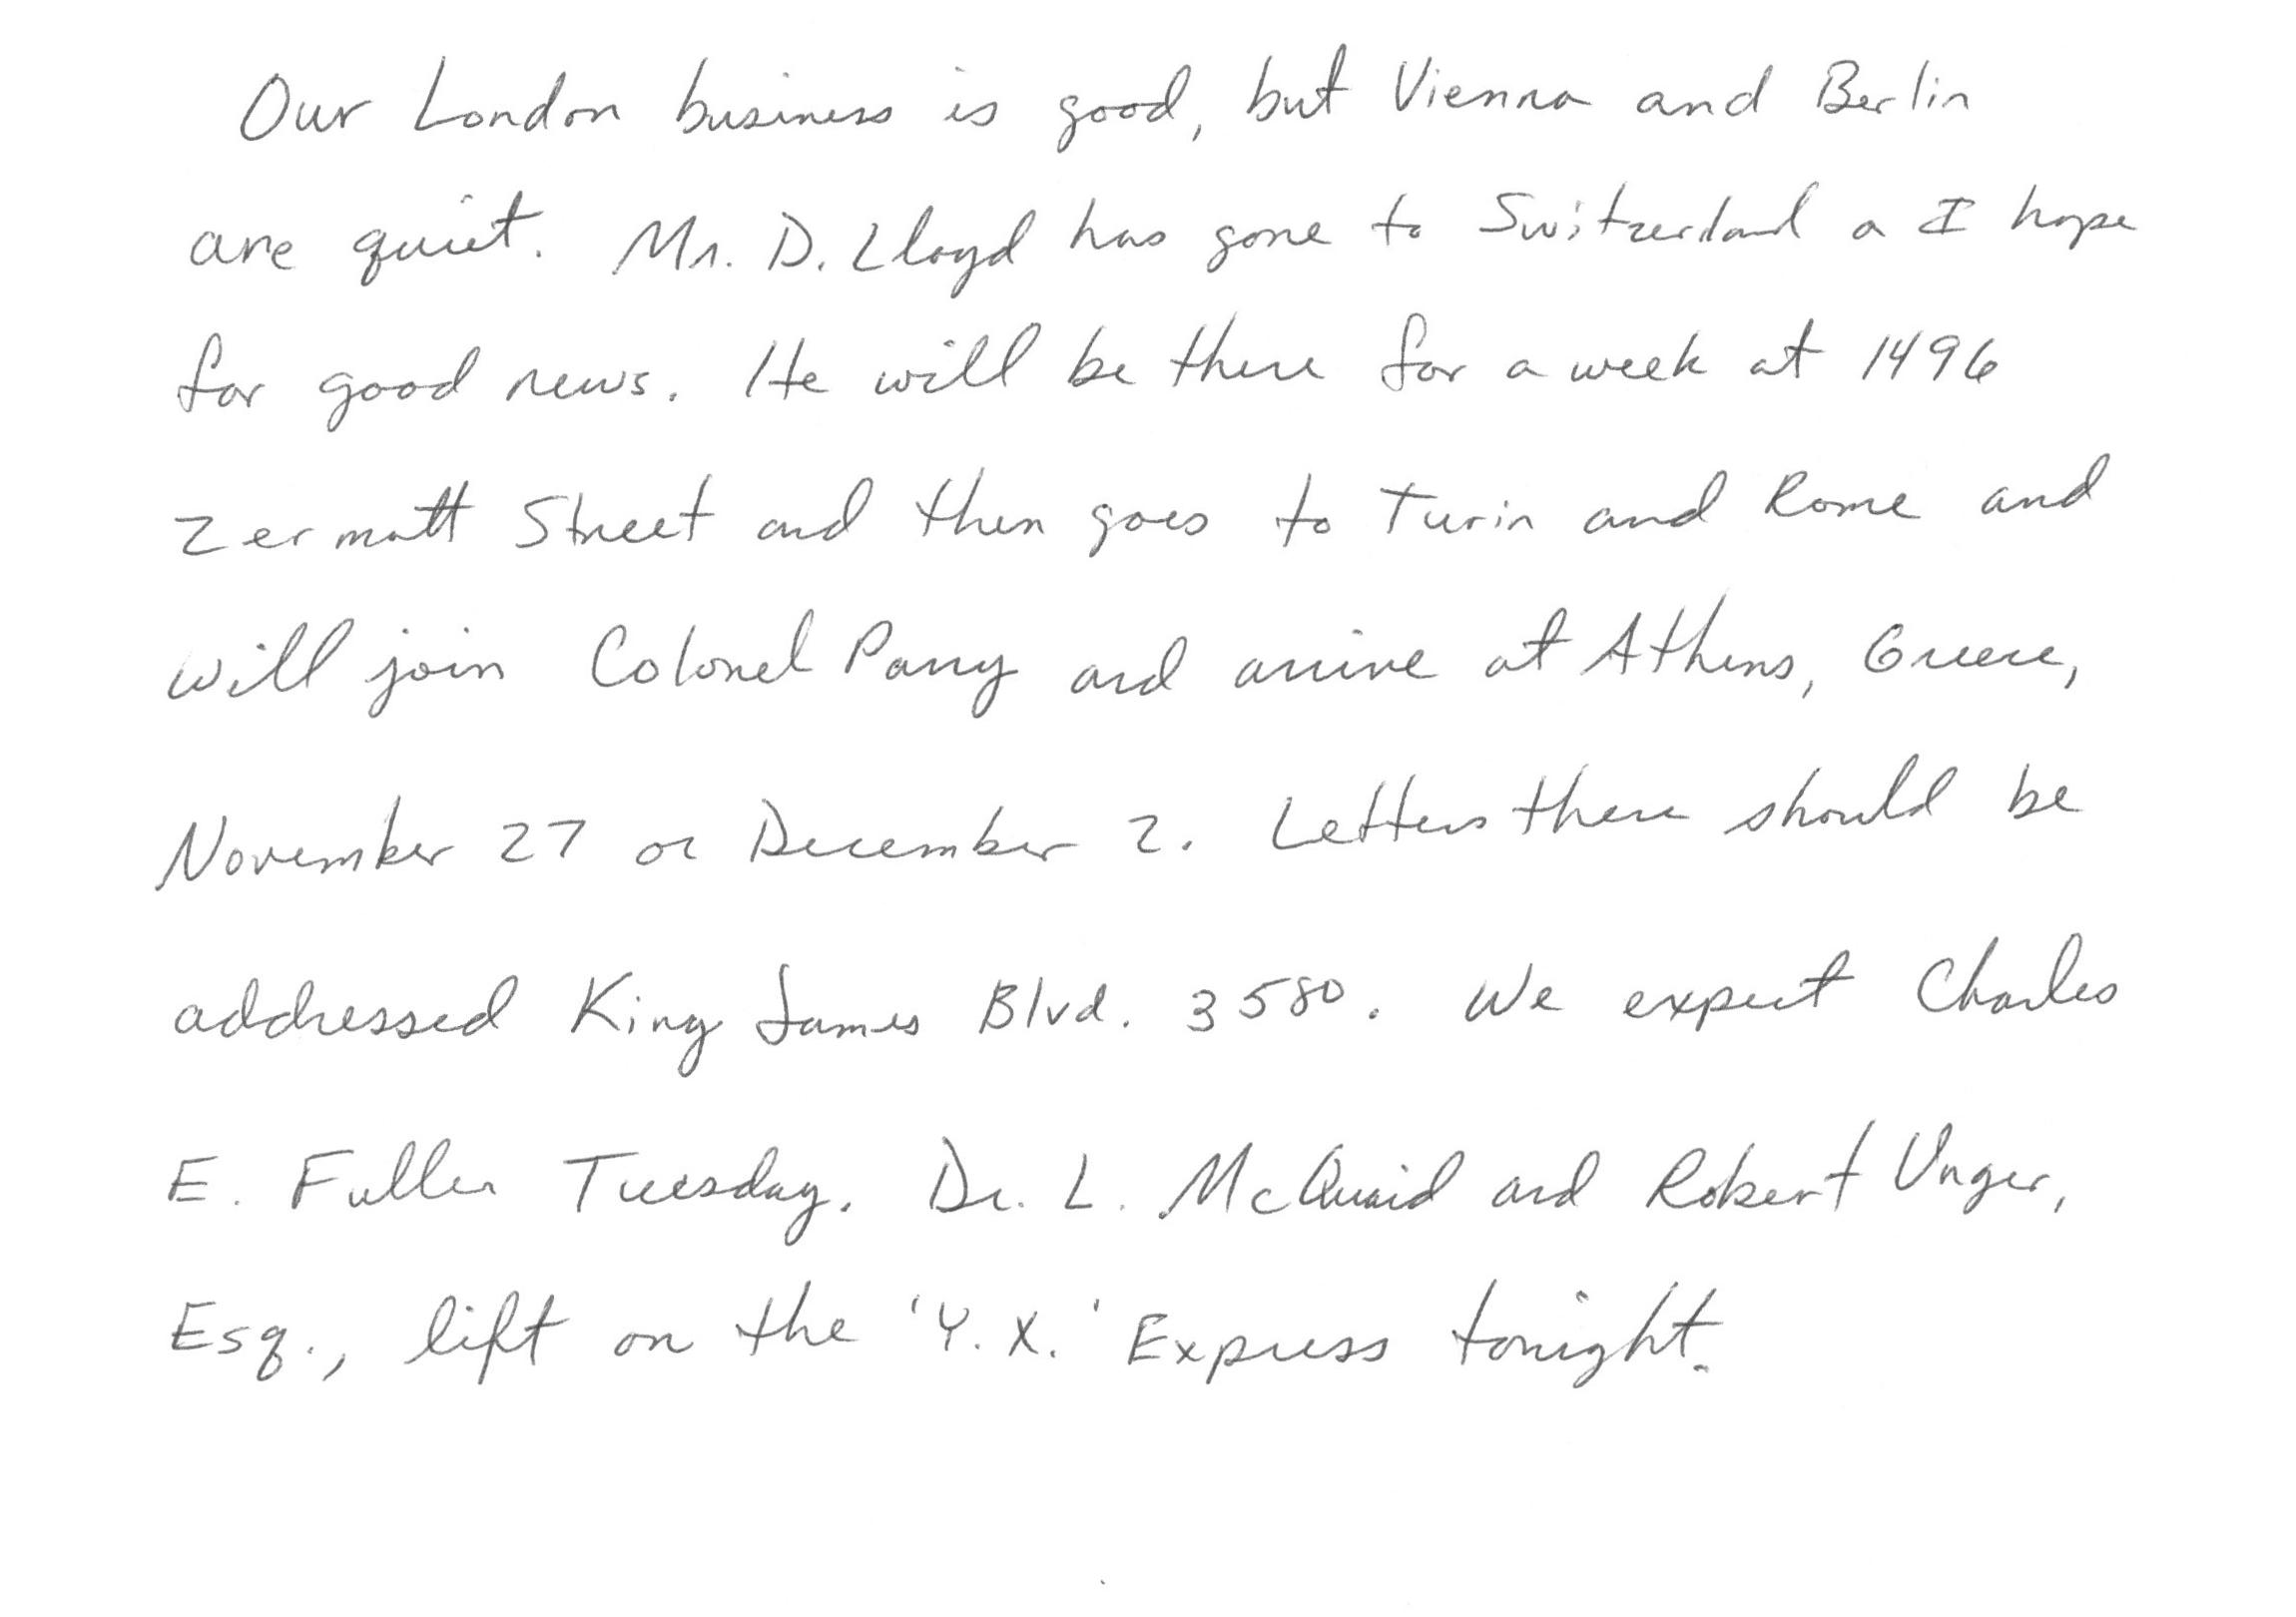 Our London business is good, but Vienna and Berlin
are quiet. Mr. D. Lloyd has gone to Switzerland a I hope
for good news. He will be there for a week at 1496
Zermatt Street and then goes to Turin and Rome and
will join Colonel Parry and arrive at Athens, Greece,
November 27 or December 2. Letters there should be
addressed King James Blvd. 3580. We expect Charles
E. Fuller Tuesday. Dr. L. McQuaid and Robert Unger,
Esq., lift on the 'Y.X.' Express tonight.